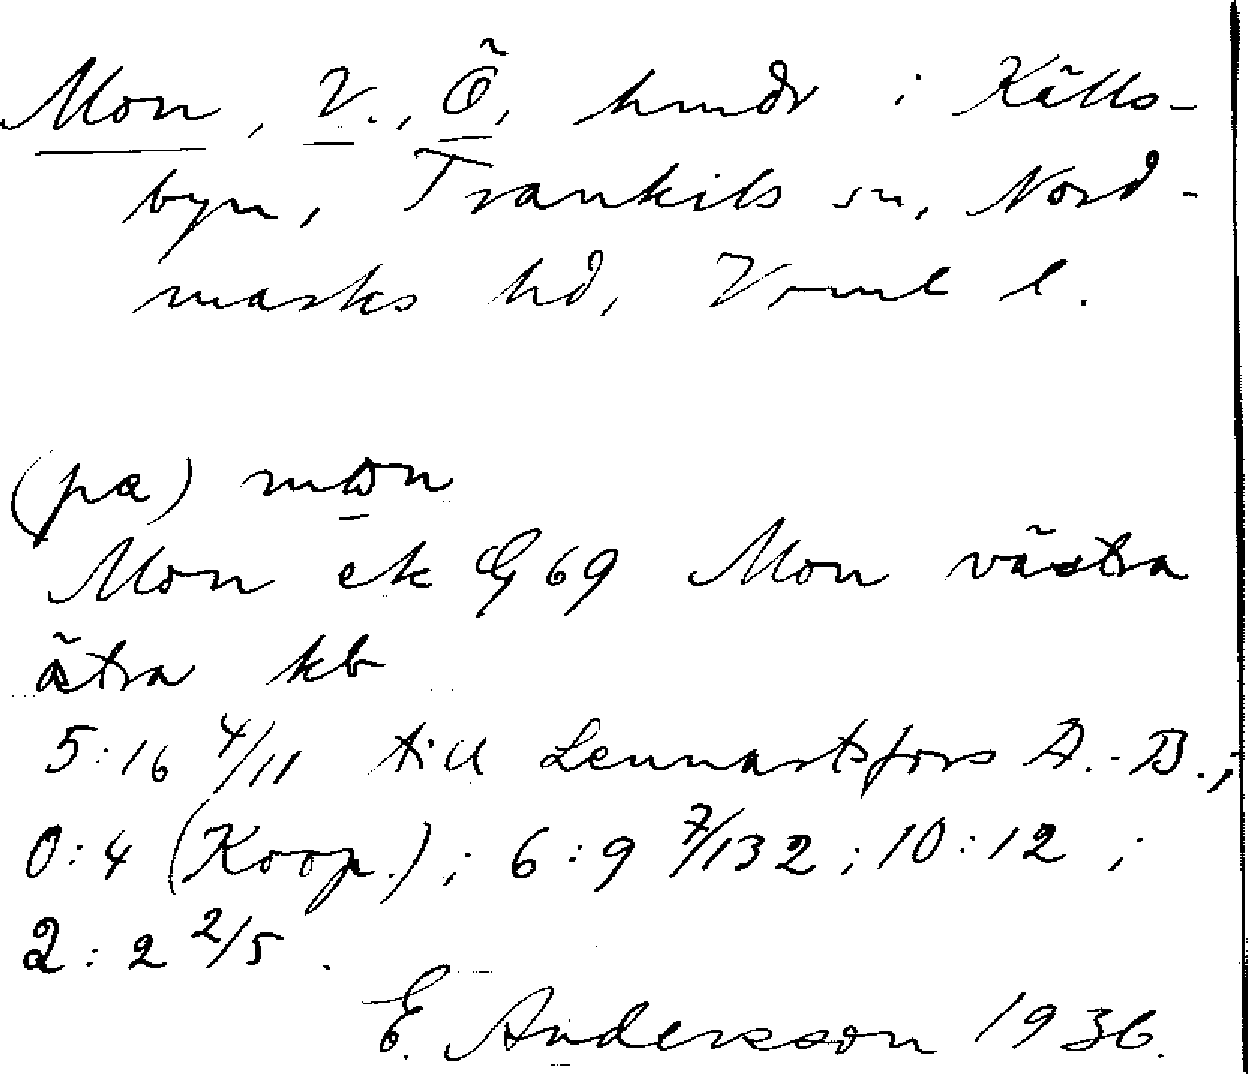 Mon, V., Ö, hmdr i Källs-
byn, Trankils sn, Nord-
marks hd, Vrml l.
(pa) mωn
Mon ek G 69 Mon västra
ästra kb
5:16 4/11 till Lennartsfors A.-B.;
0:4 (Koop.); 6:9 7/132; 10:12;
2:2 2/5.
E. Andersson 1936.